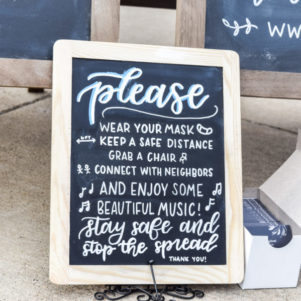 please
WEAR YOUR MASK
6FT KEEP A SAFE DISTANCE
GRAB A CHAIR
CONNECT WITH NEIGHBORS
AND ENJOY SOME
BEAUTIFUL MUSIC!
stay safe and
stop the spread
THANK YOU!
WW